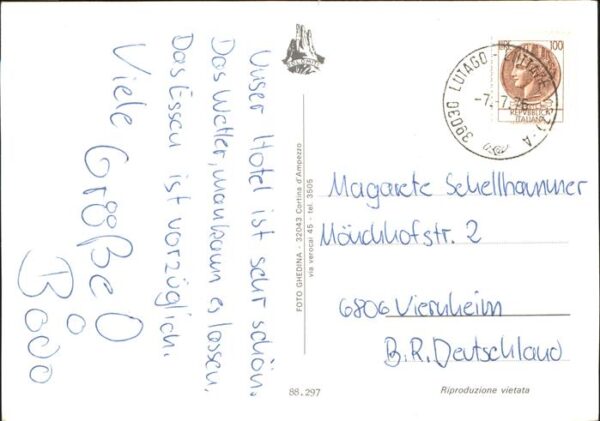 Unser Hotel ist sehr schön.
Das Wetter, man kann es lassen.
Das Essen ist vorzüglich.
Viele Größe
Bodo
FOTO GHEDINA - 32043 Cortina d'Ampezzo
via verocai 45 - tel. 3505
LIRE 100
39030 LUTAGO
REPVBBLICA
ITALIANA
Magarete Schellhammer
Mönchhofstr. 2
6806 Viernheim
B.R. Deutschland
88.297
Riproduzione vietata